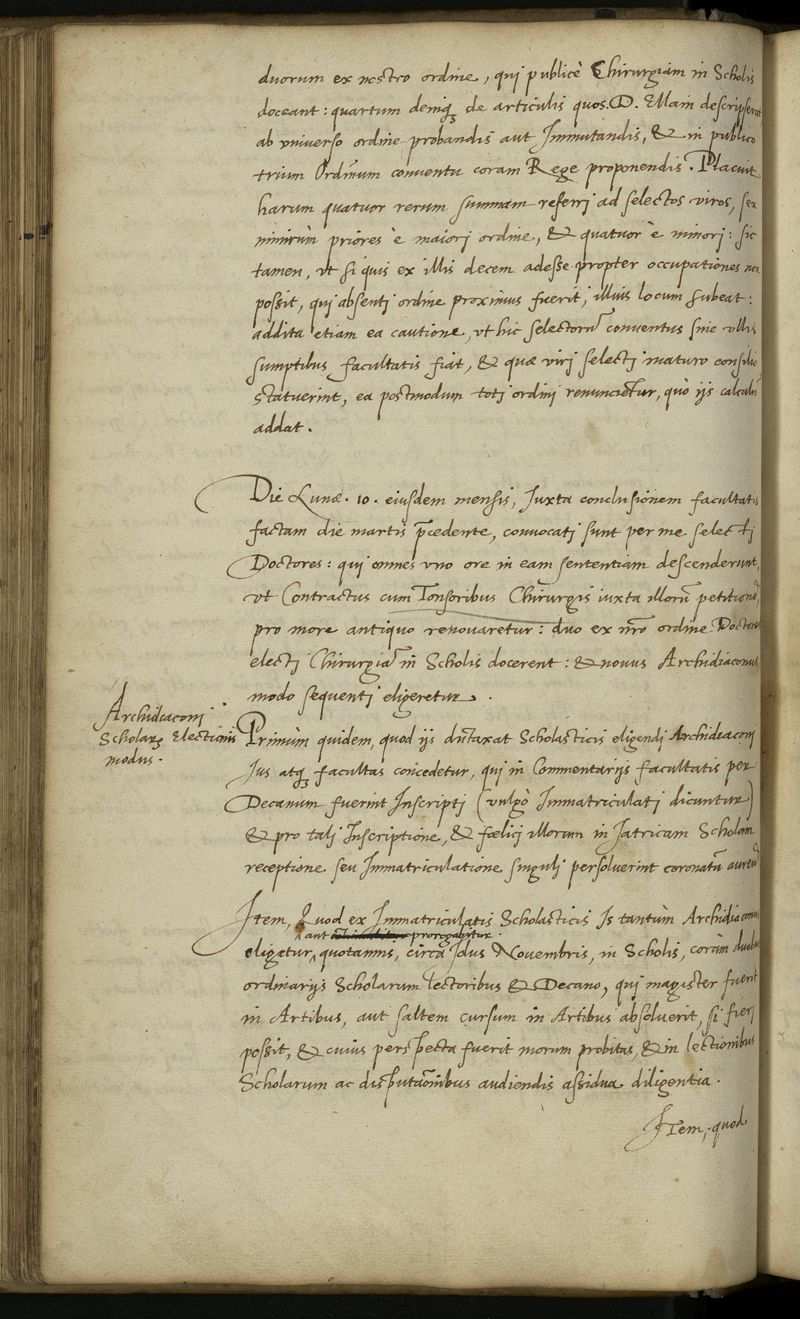 duorum ex nostro ordine, qui publicè Chirurgiam in Scholis
doceant: quartum deniq₃ de articulis quos D. Ellain descripserat
ab vniuerso ordine probandis aut Immutandis, & in publico
trium Ordinum conuentu coram Rege proponendis. Placuit
harum quatuor rerum summam referri ad selectos viros, sex
nimirùm priores è maiori ordine, & quatuor è minori: sic
tamen, vt si quis ex illis decem adesse propter occupationes non
possit, qui absenti ordine proximus fuerit, illius locum subeat:
addita etiam ea cautione, vt hic selectorū conuentus sine vllis
sumptibus facultatis fiat, & quæ viri selecti maturo consilio
statuerint, ea postmodum toti ordini renuncietur, quò ijs calculū
addat.
Die Lunæ. 10. eiusdem mensis, Juxta conclusionem facultatis
factam die martis p̄cedente, conuocati sunt per me selecti
Doctores: qui omnes vno ore in eam sententiam descenderunt,
vt Contractus cum Tonsoribus Chirurgis iuxta illorū petitionē,
pro more antiquo renouaretur: duo ex nr̄o ordine Doctores
electi Chirurgiā in Scholis docerent: & nouus Archidiaconus
modo sequenti eligeretur.
Archidiaconi
Scholarꝝ Electionis
modus.
Primùm quidem, quod ijs dūtaxat Scholasticis eligendi Archidiaconi
Jus atq₃ facultas concedetur, qui in Commentarijs facultatis per
Decanum fuerint Inscripti (vulgò Immatriculati dicuntur)
& pro tali Inscriptione, & fœlici illorum in Jatricam Scholam
receptione seu Immatriculatione singuli persoluerint coronatū aureū
Item, Quod ex Immatriculatis Scholasticis Is tantùm Archidiaconus
aut prorogabitur
eligetur, quotannis, circa Idus Nouembris, in Scholis, coràm duobus
ordinarijs Scholarum lectoribus & Decano, qui magister fuerit
in Artibus, aut saltem cursum in Artibus absoluerit, si fieri
possit, & cuius perspecta fuerit morum probitas, & in lectionibus
Scholarum ac disputaōnibus audiendis assidua diligentia.
Item, quod